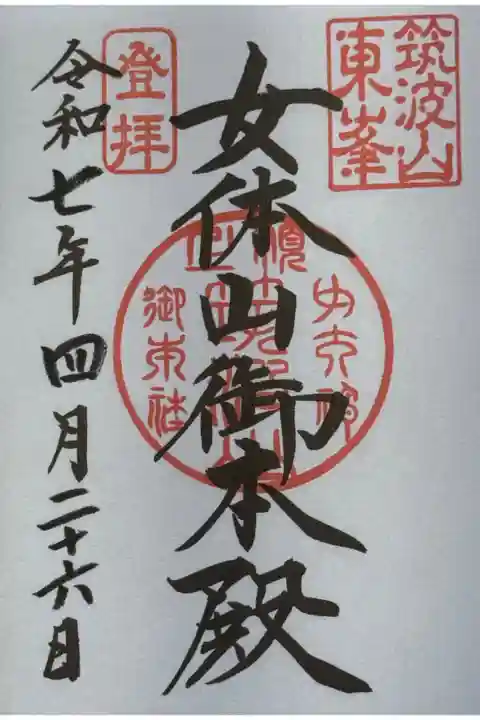 筑波山
東峯
女体山御本殿
御本社
登拝
令和七年四月二十六日